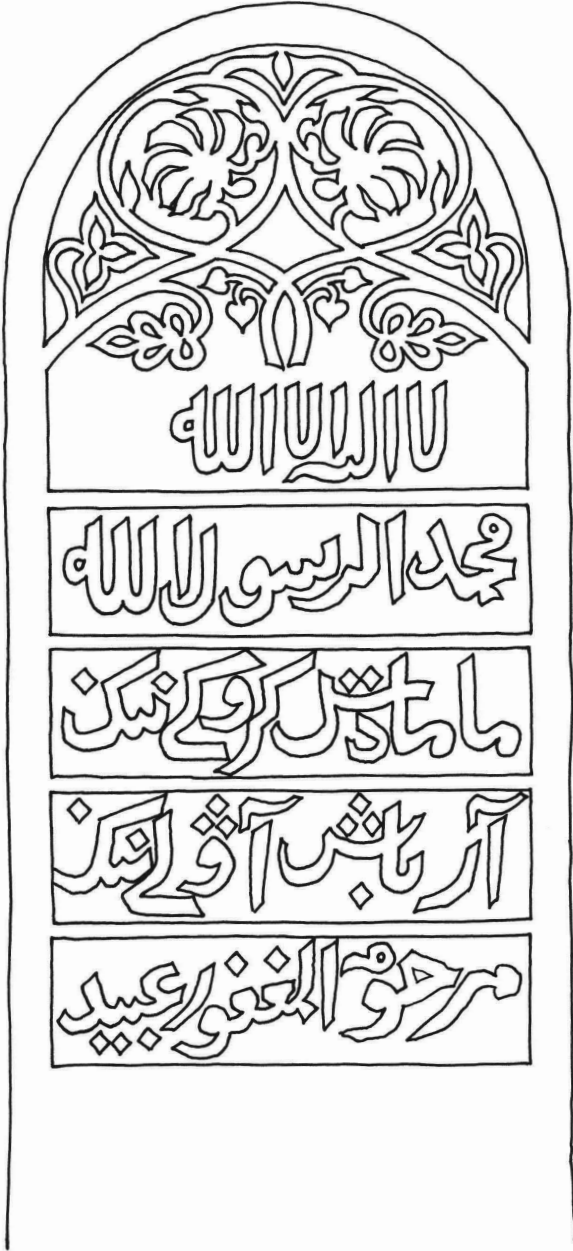 لا اله الا الله
محمد الرسول الله
مامادش كروكے ننك
آر باش آۋلے ننك
مرحوم المغفور عبيد